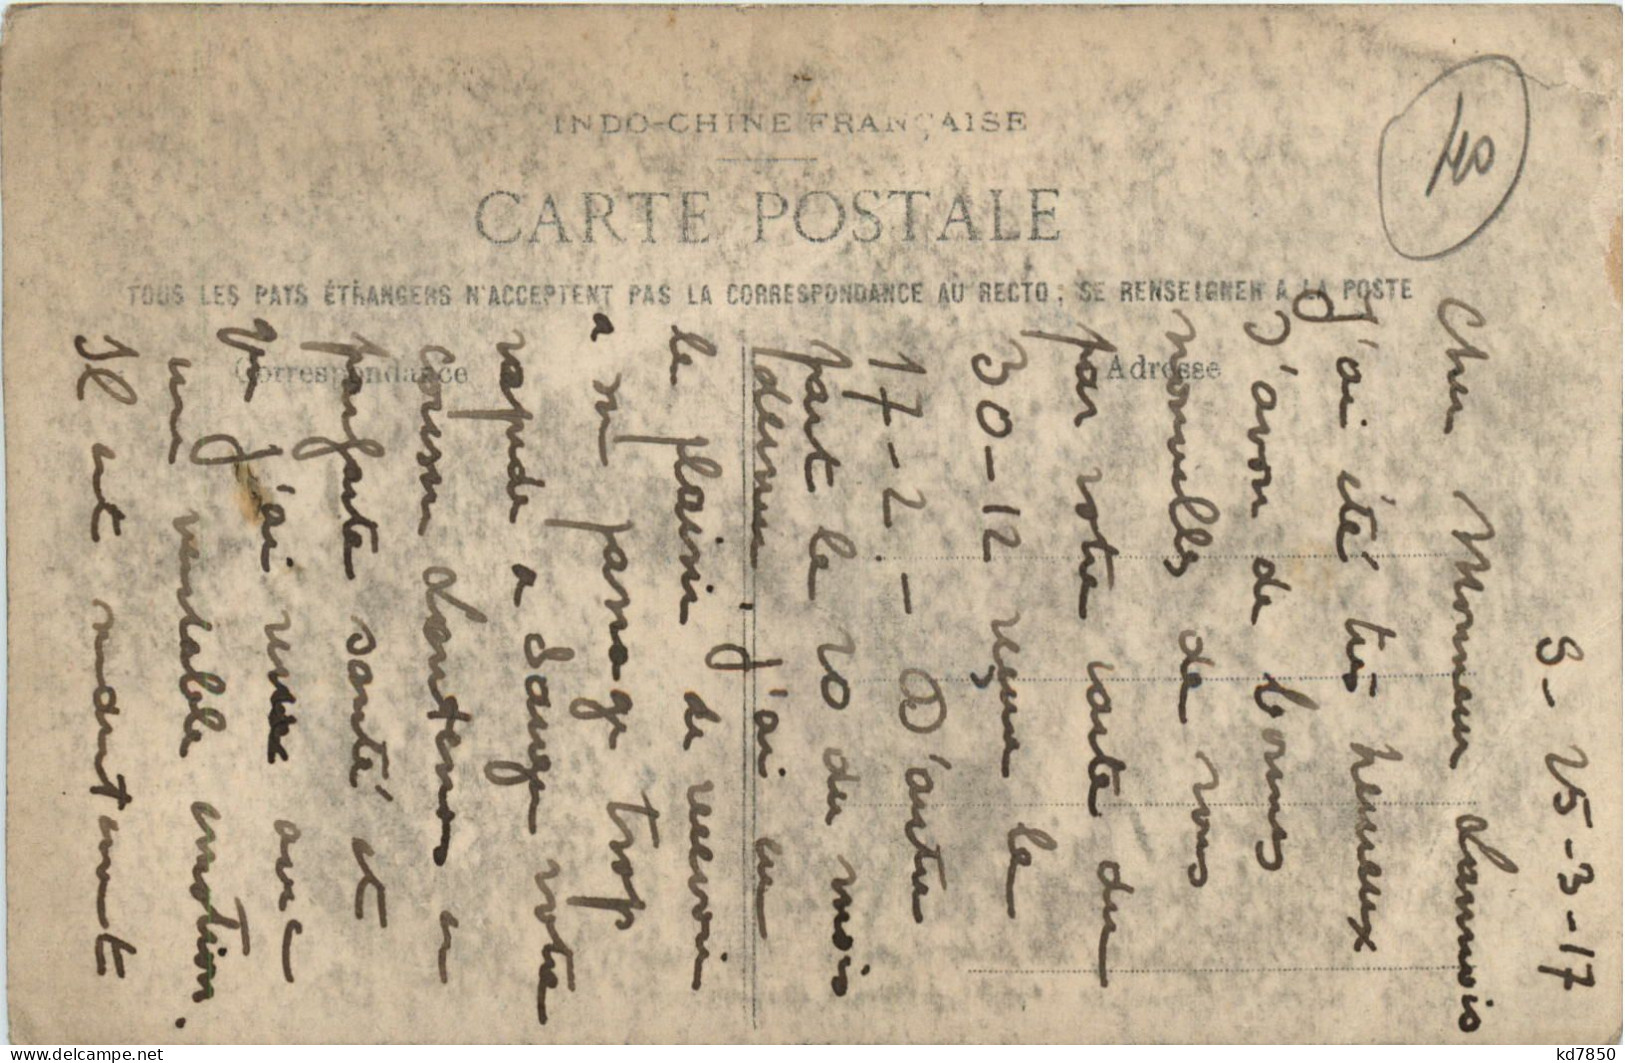 INDO-CHINE FRANÇAISE
CARTE POSTALE
TOUS LES PAYS ÉTRANGERS N'ACCEPTENT PAS LA CORRESPONDANCE AU RECTO ; SE RENSEIGNER A LA POSTE
Correspondance
Adresse
40
S- 25-3-17
Cher Monsieur Lannois
J'ai été très heureux
d'avoir de bonnes
nouvelles de vous
par votre carte du
30-12 reçue le
17-2. - D'autre
part le 20 du mois
dernier j'ai eu
le plaisir de recevoir
a son passage trop
rapide a Saigon votre
cousin en
parfaite santé et
que j'ai revu avec
une véritable émotion.
Il est maintenant
kd7850